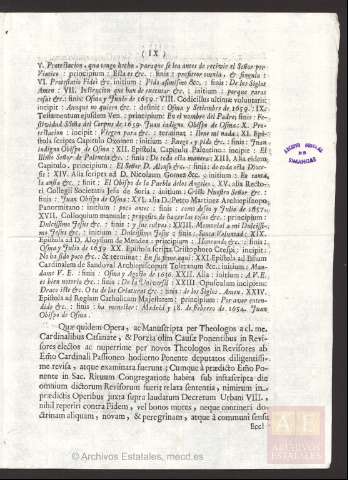 ( IX )
V. Protestacion, que tengo hecha, para que se lea antes de recivir el Señor por
Viatico : principium : Esta es &c. : finis : prosternor omnia, & singula :
VI. Protestatio Fidei &c. initium : Pido assimismo &c. : finis : De los Siglos
Amen : VII. Instrucion que han de executar &c. : initium : porque raras
cosas &c. : finis : Osma y Junio de 1659. : VIII. Codicillus ultimæ voluntatis:
incipit : Aunque no quiero &c. : desinit : Osma y Setiembre de 1659. : IX.
Testamentum ejusdem Ven. : principium : En el nombre del Padre; finis : Fe-
stividad Santa del Corpus de 1659. Juan indigno Obispo de Osma: X. Pro-
testacion : incipit : Virgen pura &c. : terminat : llene mi nada : XI. Epi-
stola scripta Capitulo Oxomen : initium : Ruego, y pido &c. : finis : Juan
indigno Obispo de Osma : XII. Epistola, Capitulo Palentino: incipit : El
Illmo Señor de Palencia &c. : finis : De toda esta manera : XIII. Alia eidem
Capitulo, principium : El Señor D. Alonso &c. : finis : de toda esta Dioce-
sis : XIV. Alia scripta ad D. Nicolaum Gomes &c. initium : Es tanta
la ansia &c. : finis : El Obispo de la Puebla delos Angeles : XV. alia Recto-
ri Collegii Societatis Jesu de Soria : initium : Christo Nuestro Señor &c. :
finis : Juan Obispo de Osma : XVI. alia D. Petro Martinez Archiepiscopo
Panormitano : initium : poco antes : finis : como deseo y Julio de 1657. :
XVII. Colloquium manuale : proposito de hazer las cosas &c. : principium :
Dulcissimo Jesus &c. : finis : y sus culpas : XVIII. Memorial a mi Dulcissi-
mo Jesus &c. : initium : Dulcissimo Jesus : finis : Santa Voluntad : XIX.
Epistola ad D. Aloysium de Mendes : principium : Honrando &c. : finis :
Osma, y Julio de 1659. XX. Epistola scripta Cristophoro Crespi: incipit :
No ha sido poco &c. : & terminat : En su fenne aqui: XXI. Epistola ad Emum
Cardinalem de Sandoval Archiepiscopum Toletanum &c. : initium : Man-
dame V. E. : finis : Osma y Agosto de 1656. XXII. Alia : initium : A V. E.
es bien notorio &c. : finis : De la Universidad : XXIII. Opusculum incipiens :
Deseo este &c. O tu de las Criaturas &c. : finis : de los Siglos. Amen. XXIV.
Epistola ad Regiam Catholicam Majestatem ; principium : Por aver enten-
dido &c. : finis : ha menester : Madrid y 18. de Febrero de 1654. Juan
Obispo de Osma.
Quæ quidem Opera, ac Manuscripta per Theologos a cl. me.
Cardinalibus Casinate, & Porzia olim Causæ Ponentibus in Revi-
sores electos ac nuperrime per novos Theologos in Revisores ab
Emo Cardinali Passioneo hodierno Ponente deputatos diligentissi-
me revisa, atque examinata fuerunt ; Cumque à prædicto Emo Po-
nente in Sac. Rituum Congregatione habita sub infrascripta die
omnium dictorum Revisorum fuerit relata sententia, nimirum in
prædictis Operibus juxta supra laudatum Decretum Urbani VIII.
nihil reperiri contra Fidem, vel bonos mores, neque contineri do-
ctrinam aliquam, novam, & peregrinam, atque à communi sensu
Eccl-
ARCHIVO GENERAL DE SIMANCAS
AE
ARCHIVOS
ESTATALES
© Archivos Estatales, mecd.es